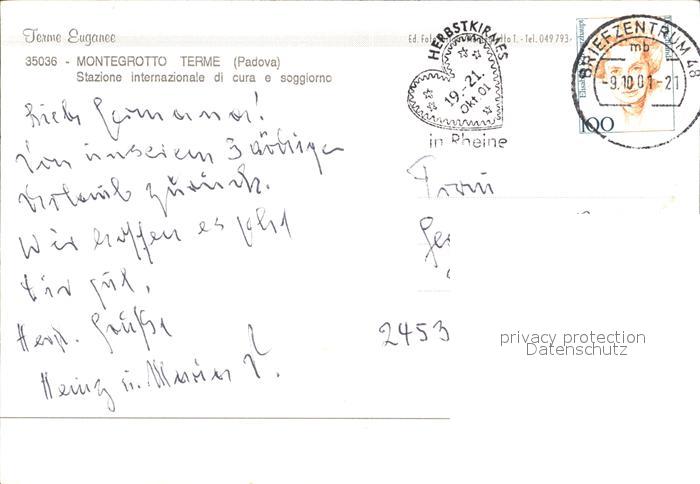 Terme Euganee
35036 - MONTEGROTTO TERME (Padova)
Stazione internazionale di cura e soggiorno
Ed. Fot
to T. - Tel. 049 793
HERBSTKIRMES
19.-21.
Okt 01
in Rheine
BRIEFZENTRUM 48
mb
-9.10.01-21
100
Liebe Germana!
Von unserem 3 wöchigen
Urlaub zurück.
Wir hoffen es geht
Dir gut.
Herzl. Grüße
Heinz u. Maria
Frau
Ge
2453
privacy protection
Datenschutz